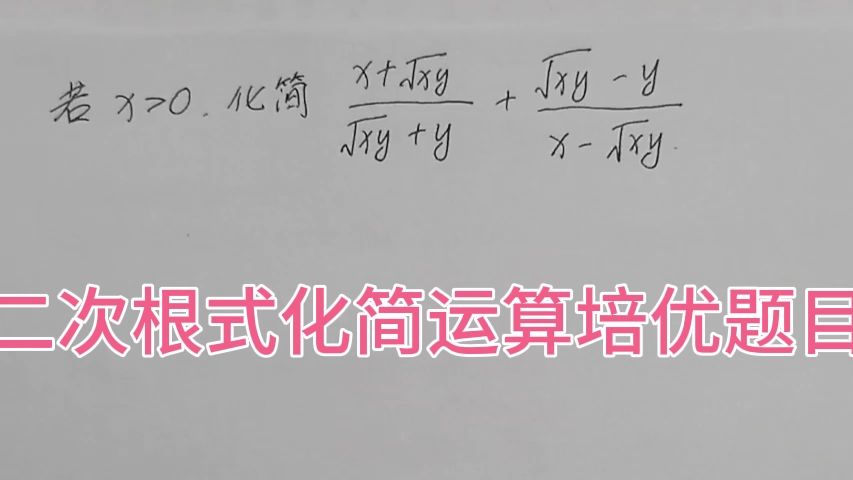 若 x>0. 化简 \frac{x+\sqrt{xy}}{\sqrt{xy}+y} + \frac{\sqrt{xy}-y}{x-\sqrt{xy}}
二次根式化简运算培优题目